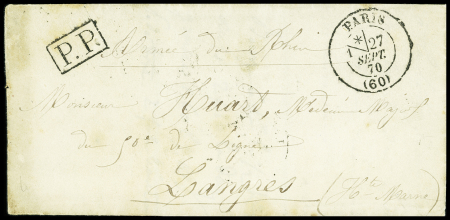 P.P.
PARIS
7 * 27
SEPT.
70
(60)
Armée du Rhin
Monsieur Huart, Médecin Major
du 50e de Ligne
Langres (Hte Marne)